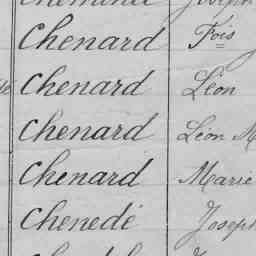 Chenard Fois
Chenard Léon
Chenard Léon M
Chenard Marie
Chenedé Joseph